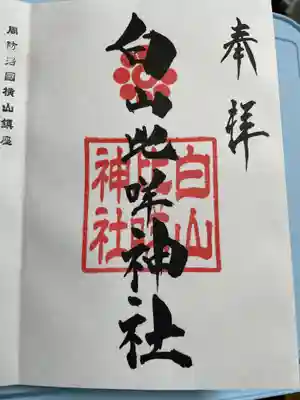 奉拝
白山比咩神社
白山
比咩
神社
周防岩国横山鎮座